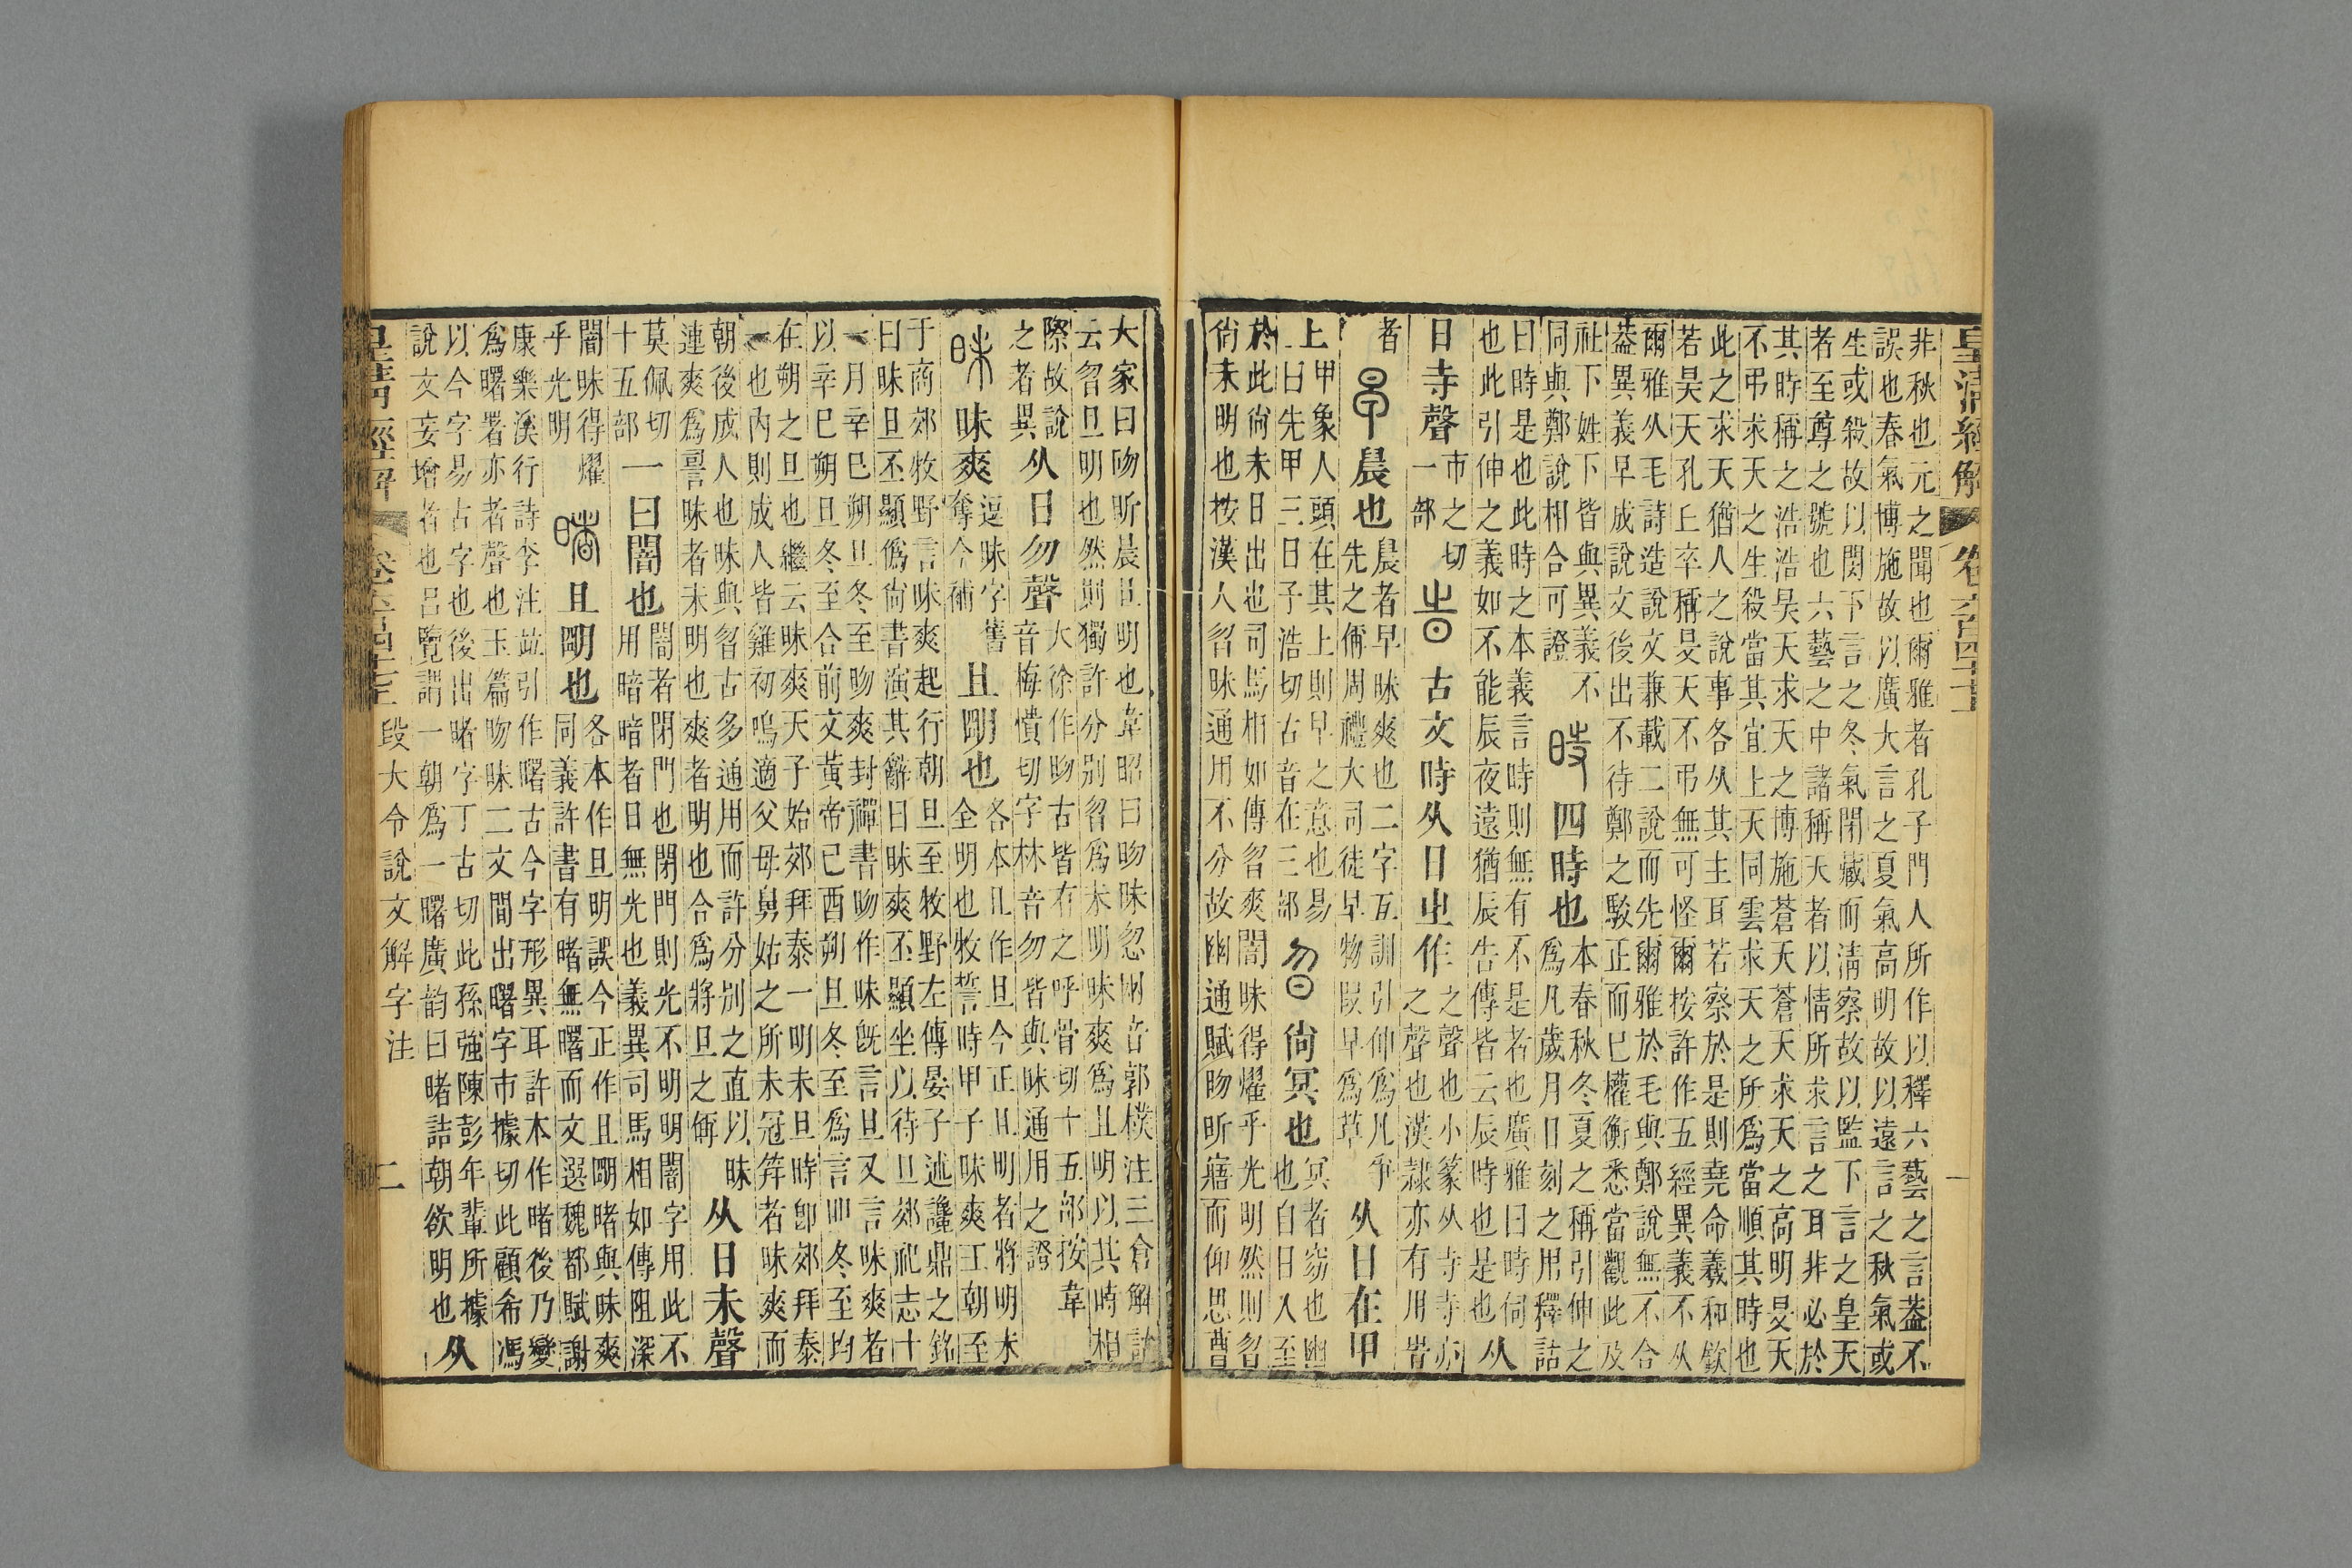 皇清經解 卷六百四十七 一
非秋也元之聞也爾雅者孔子門人所作以釋六藝之言葢不
誤也春氣博施故以廣大言之夏氣高明故以遠言之秋氣或
生或殺故以閔下言之冬氣閉藏而淸察故以監下言之皇天
者至尊之號也六藝之中諸稱天者以情所求言之耳非必於
其時稱之浩浩昊天求天之博施蒼天蒼天求天之高明旻天
不弔求天之生殺當其宜上天同雲求天之所爲當順其時也
此之求天猶人之說事各从其主耳若察於是則堯命羲和欽
若昊天孔丘卒稱旻天不弔無可怪爾按許作五經異義不从
爾雅从毛詩造說文兼載二說而先爾雅於毛與鄭說無不合
葢異義早成說文後出不待鄭之駁正而已權衡悉當觀此及
社下姓下皆與異義不
同與鄭說相合可證
時 四時也
本春秋冬夏之稱引伸之
爲凡歲月日刻之用釋詁
曰時是也此時之本義言時則無有不是者也廣雅曰時伺
也此引伸之義如不能辰夜遠猶辰告傳皆云辰時也是也
从
日寺聲
市之切
一部
旹 古文時从日㞢作
之聲也小篆从寺寺亦
之聲也漢隸亦有用旹
者
早 晨也
晨者早昧爽也二字互訓引伸爲凡爭
先之偁周禮大司徒早物叚早爲草
从日在甲
上
甲象人頭在其上則早之意也易
曰先甲三日子浩切古音在三部
曶 尙冥也
冥者窈也幽
也自日入至
於此尙未日出也司馬相如傳曶爽闇昧得燿乎光明然則曶
尙未明也按漢人曶昧通用不分故幽通賦昒昕寤而仰思曹
大家曰昒昕晨旦明也韋昭曰昒昧忽㓜音郭樸注三倉解詁
云曶旦明也然則獨許分別曶爲未明昧爽爲且明以其時相
際故說
之者異
从日勿聲
大徐作昒古皆有之呼骨切十五部按韋
音梅憒切字林音勿皆與昧通用之證
昧 昧爽
逗昧字舊
奪今補
且朙也
各本且作旦今正且明者將明未
全明也牧誓時甲子昧爽王朝至
于商郊牧野言昧爽起行朝旦至牧野左傳晏子述讒鼎之銘
曰昧旦丕顯僞尙書演其辭曰昧爽丕顯坐以待旦郊祀志十
一月辛巳朔旦冬至昒爽封禪書昒作昧旣言旦又言昧爽者
以辛巳朔旦冬至合前文黃帝己酉朔旦冬至爲言叩冬至均
在朔之旦也繼云昧爽天子始郊拜泰一明未旦時卽郊拜泰
一也內則成人皆雞初鳴適父母舅姑之所未冠笄者昧爽而
朝後成人也昧與曶古多通用而許分別之直以昧
連爽爲䛐昧者未明也爽者明也合爲將旦之偁
从日未聲
莫佩切
十五部
一曰闇也
闇者閉門也閉門則光不明明闇字用此不
用暗暗者日無光也義異司馬相如傳阻深
闇昧得燿
乎光明
睹 且朙也
各本作旦明誤今正作且朙睹與昧爽
同義許書有睹無曙而文選魏都賦謝
康樂溪行詩李注竝引作曙古今字形異耳許本作睹後乃變
爲曙署亦者聲也玉篇昒昧二文閒出曙字市據切此顧希馮
以今字易古字也後出睹字丁古切此孫強陳彭年輩所據
說文妄增者也呂覽謂一朝爲一曙廣韵曰睹詰朝欲明也
从
皇清經解 卷六百四十七 段大令說文解字注 二